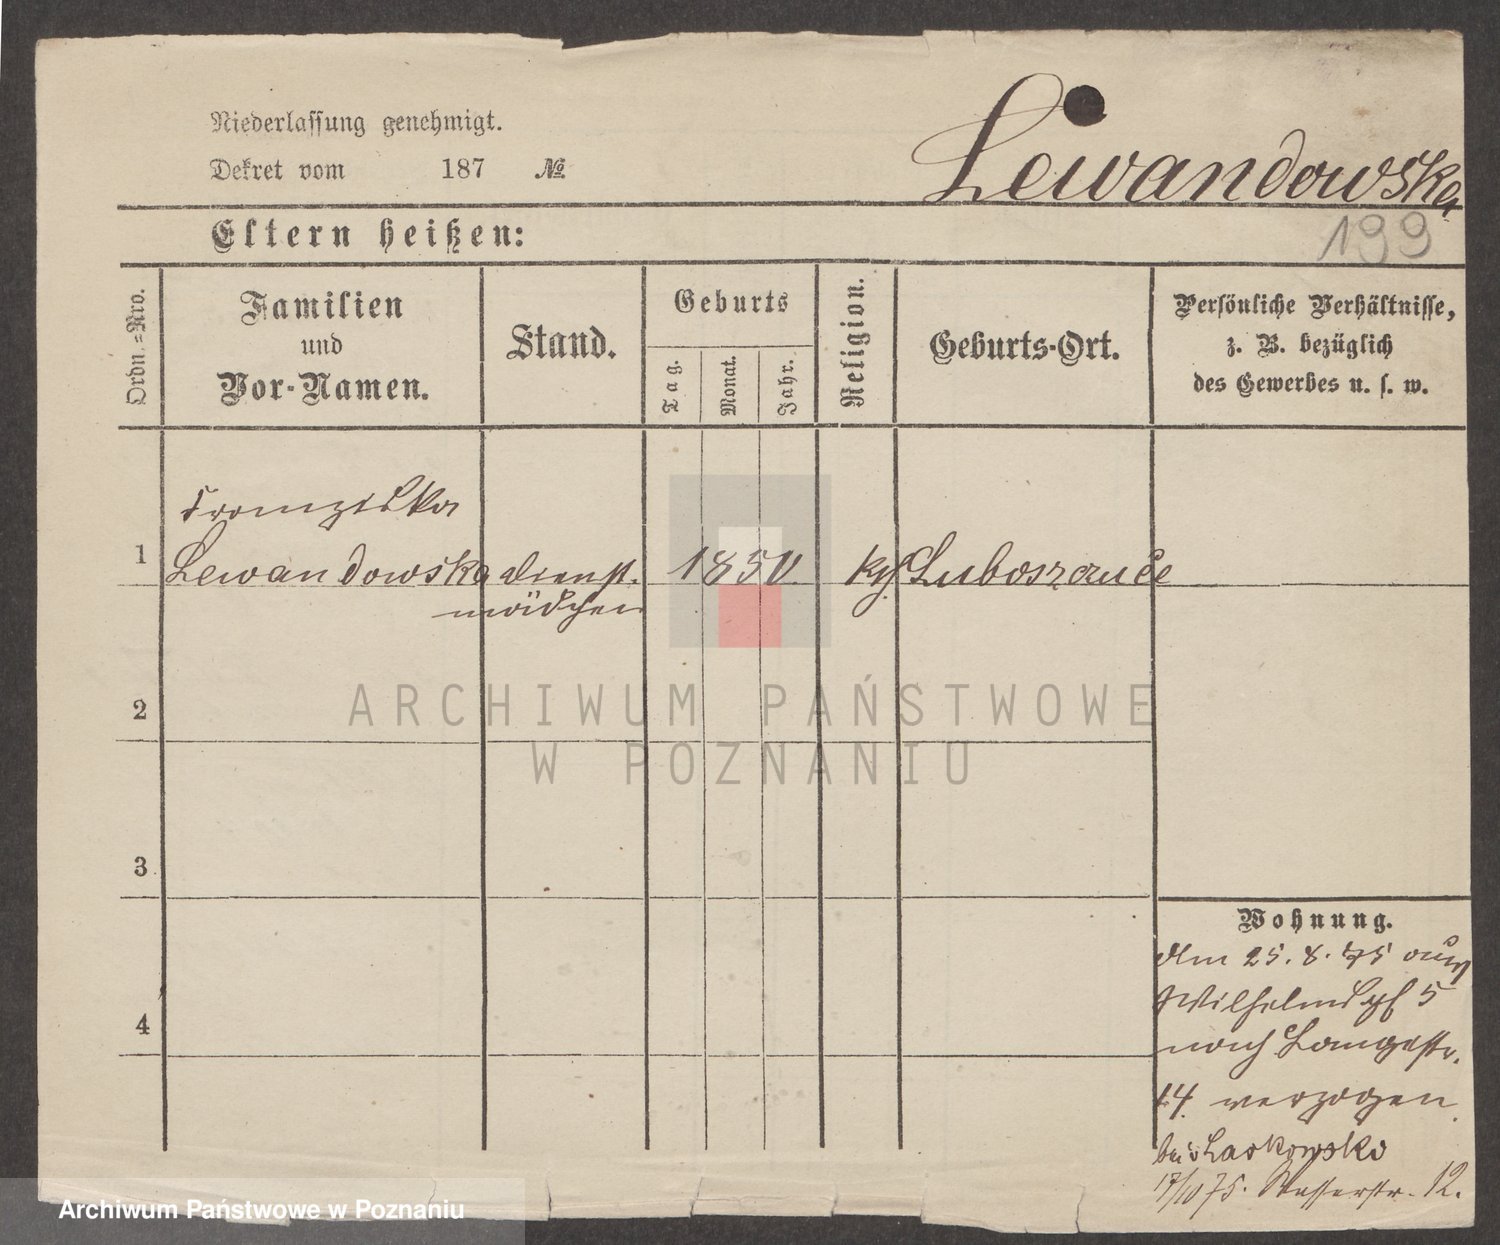 Niederlassung genehmigt.
Dekret vom 187 №
Lewandowska
199
Eltern heißen:
Ordn.=Nro.
Familien
und
Vor-Namen.
Stand.
Geburts
Tag.
Monat.
Jahr.
Religion.
Geburts-Ort.
Persönliche Verhältnisse,
z. B. bezüglich
des Gewerbes u. s. w.
Franziska
1 Lewandowska Dienst- 1850 kth
mädchen
2
3
4
Wohnung.
Am 25. 8. 75 aus
Wilhelmspl 5
nach Langestr.
14 verzogen
bei Laskowski
17/10 75. Wasserstr. 12.
ARCHIWUM PAŃSTWOWE
W POZNANIU
Archiwum Państwowe w Poznaniu